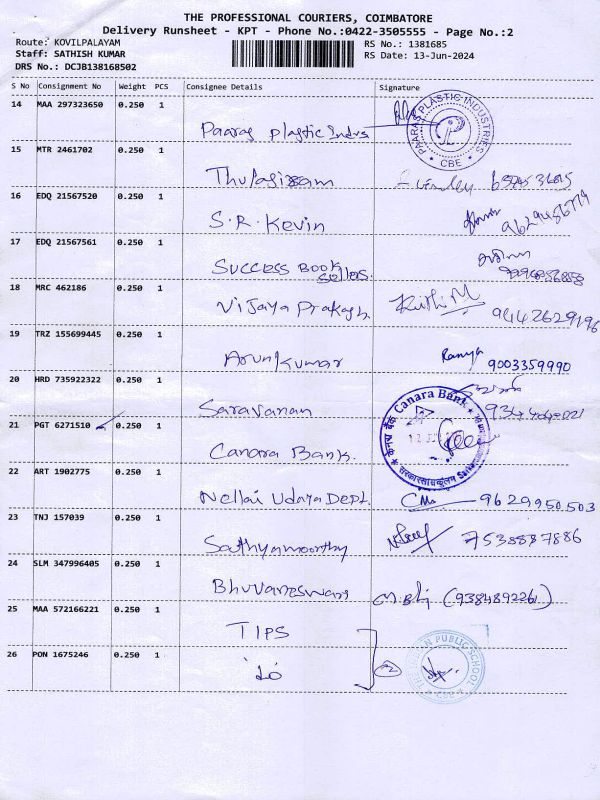 THE PROFESSIONAL COURIERS, COIMBATORE
Delivery Runsheet - KPT - Phone No.:0422-3505555 - Page No.:2
Route: KOVILPALAYAM
Staff: SATHISH KUMAR
DRS No.: DCJB138168502
RS No.: 1381685
RS Date: 13-Jun-2024
S No Consignment No Weight PCS Consignee Details Signature
14 MAA 297323650 0.250 1
Paaras Plastic Indus
PAARAS PLASTIC INDUSTRIES
* CBE *
15 MTR 2461702 0.250 1
Thulasiram
16 EDQ 21567520 0.250 1
S.R. Kevin
17 EDQ 21567561 0.250 1
Success Book
Sellers.
18 MRC 462186 0.250 1
Vijaya Prakash
9442629196
19 TRZ 155699445 0.250 1
Arunkumar Ramya 9003359990
20 HRD 735922322 0.250 1
Saravanan
21 PGT 6271510 0.250 1
Canara Bank.
केनरा बैंक Canara Bank
22 ART 1902775 0.250 1
Nellai Udaya Dept. 9629950503
23 TNJ 157039 0.250 1
Sathyamoorthy 7538887886
24 SLM 347996405 0.250 1
Bhuvaneswari (9384892261)
25 MAA 572166221 0.250 1
TIPS
26 PON 1675246 0.250 1
PUBLIC SCHOOL